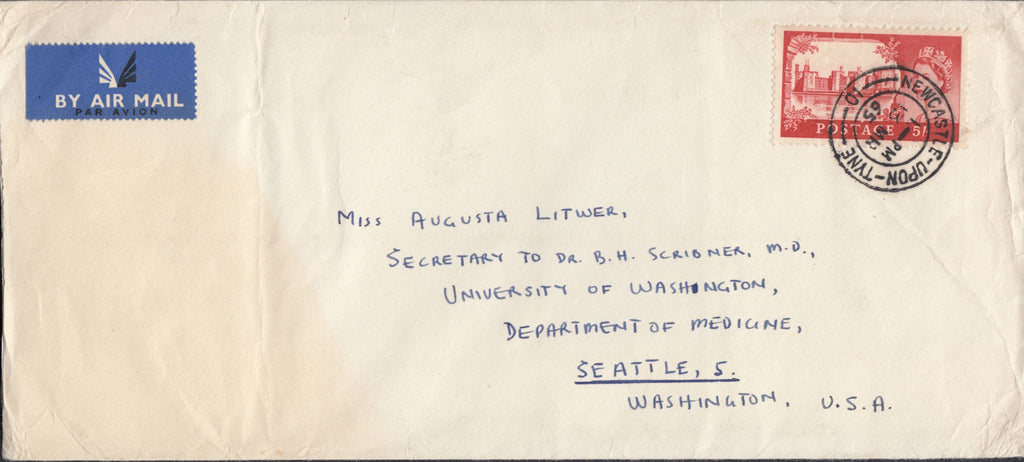 BY AIR MAIL
PAR AVION
POSTAGE 5/-
NEWCASTLE-UPON-TYNE
PM
MR
65
MISS AUGUSTA LITWER,
SECRETARY TO DR. B.H. SCRIBNER, M.D.,
UNIVERSITY OF WASHINGTON,
DEPARTMENT OF MEDICINE,
SEATTLE, 5.
WASHINGTON. U.S.A.